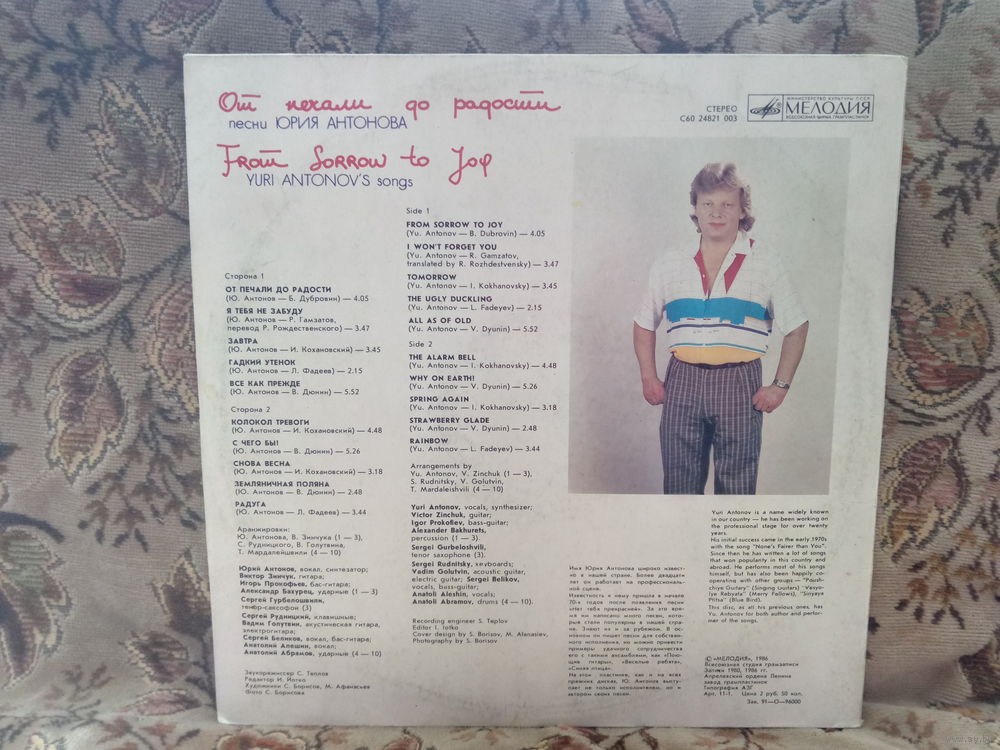 От печали до радости
песни ЮРИЯ АНТОНОВА
From Sorrow to Joy
YURI ANTONOV'S songs
СТЕРЕО
С60 24821 003
МИНИСТЕРСТВО КУЛЬТУРЫ СССР
МЕЛОДИЯ
ВСЕСОЮЗНАЯ ФИРМА ГРАМПЛАСТИНОК
Сторона 1
ОТ ПЕЧАЛИ ДО РАДОСТИ
(Ю. Антонов — Б. Дубровин) — 4.05
Я ТЕБЯ НЕ ЗАБУДУ
(Ю. Антонов — Р. Гамзатов,
перевод Р. Рождественского) — 3.47
ЗАВТРА
(Ю. Антонов — И. Кохановский) — 3.45
ГАДКИЙ УТЕНОК
(Ю. Антонов — Л. Фадеев) — 2.15
ВСЕ КАК ПРЕЖДЕ
(Ю. Антонов — В. Дюнин) — 5.52
Сторона 2
КОЛОКОЛ ТРЕВОГИ
(Ю. Антонов — И. Кохановский) — 4.48
С ЧЕГО БЫ!
(Ю. Антонов — В. Дюнин) — 5.26
СНОВА ВЕСНА
(Ю. Антонов — И. Кохановский) — 3.18
ЗЕМЛЯНИЧНАЯ ПОЛЯНА
(Ю. Антонов — В. Дюнин) — 2.48
РАДУГА
(Ю. Антонов — Л. Фадеев) — 3.44
Аранжировки:
Ю. Антонова, В. Зинчука (1 — 3),
С. Рудницкого, В. Голутвина,
Т. Мардалейшвили (4 — 10)
Юрий Антонов, вокал, синтезатор;
Виктор Зинчук, гитара;
Игорь Прокофьев, бас-гитара;
Александр Бахурец, ударные (1 — 3)
Сергей Гурбелошвили,
тенор-саксофон (3)
Сергей Рудницкий, клавишные;
Вадим Голутвин, акустическая гитара,
электрогитара;
Сергей Беликов, вокал, бас-гитара;
Анатолий Алешин, вокал;
Анатолий Абрамов, ударные (4 — 10)
Звукорежиссер С. Теплов
Редактор И. Йотко
Художники С. Борисов, М. Афанасьев
Фото С. Борисова
Side 1
FROM SORROW TO JOY
(Yu. Antonov — B. Dubrovin) — 4.05
I WON'T FORGET YOU
(Yu. Antonov — R. Gamzatov,
translated by R. Rozhdestvensky) — 3.47
TOMORROW
(Yu. Antonov — I. Kokhanovsky) — 3.45
THE UGLY DUCKLING
(Yu. Antonov — L. Fadeyev) — 2.15
ALL AS OF OLD
(Yu. Antonov — V. Dyunin) — 5.52
Side 2
THE ALARM BELL
(Yu. Antonov — I. Kokhanovsky) — 4.48
WHY ON EARTH!
(Yu. Antonov — V. Dyunin) — 5.26
SPRING AGAIN
(Yu. Antonov — I. Kokhanovsky) — 3.18
STRAWBERRY GLADE
(Yu. Antonov — V. Dyunin) — 2.48
RAINBOW
(Yu. Antonov — L. Fadeyev) — 3.44
Arrangements by
Yu. Antonov, V. Zinchuk (1 — 3),
S. Rudnitsky, V. Golutvin,
T. Mardaleishvili (4 — 10)
Yuri Antonov, vocals, synthesizer;
Victor Zinchuk, guitar;
Igor Prokofiev, bass-guitar;
Alexander Bakhurets,
percussion (1 — 3).
Sergei Gurbeloshvili,
tenor saxophone (3).
Sergei Rudnitsky, keyboards;
Vadim Golutvin, acoustic guitar,
electric guitar; Sergei Belikov,
vocals, bass-guitar;
Anatoli Aleshin, vocals;
Anatoli Abramov, drums (4 — 10).
Recording engineer S. Teplov
Editor I. Iotko
Cover design by S. Borisov, M. Afanasiev,
Photography by S. Borisov
Имя Юрия Антонова широко извест-
но в нашей стране. Более двадцати
лет он работает на профессиональ-
ной сцене.
Известность к нему пришла в начале
70-х годов после появления песни
«Нет тебя прекрасней». За это вре-
мя им написано много песен, кото-
рые стали популярны в нашей стра-
не. Знают их и за рубежом. В ос-
новном он пишет песни для собствен-
ного исполнения, но можно привести
примеры удачного сотрудничества
его с такими ансамблями, как «Пою-
щие гитары», «Веселые ребята»,
«Синяя птица».
На этой пластинке, как и на всех
прежних дисках, Ю. Антонов высту-
пает не только исполнителем, но и
автором своих песен.
Yuri Antonov is a name widely known
in our country — he has been working on
the professional stage for over twenty
years.
His initial success came in the early 1970s
with the song "None's Fairer than You".
Since then he has written a lot of songs
that won popularity in this country and
abroad. He performs most of his songs
himself, but has also been happily co-
operating with other groups — "Poush-
chiye Gutary" (Singing Guitars) "Vesyo-
lye Rebyata" (Merry Fallows), "Sinyaya
Ptitsa" (Blue Bird).
This disc, as all his previous ones, has
Yu. Antonov for both author and perfor-
mer of the songs.
© «МЕЛОДИЯ», 1986
Всесоюзная студия грамзаписи
Записи 1980, 1986 гг.
Апрелевский ордена Ленина
завод грампластинок
Типография АЗГ
Арт. 11-1. Цена 2 руб. 50 коп.
Зак. 91—О—96000